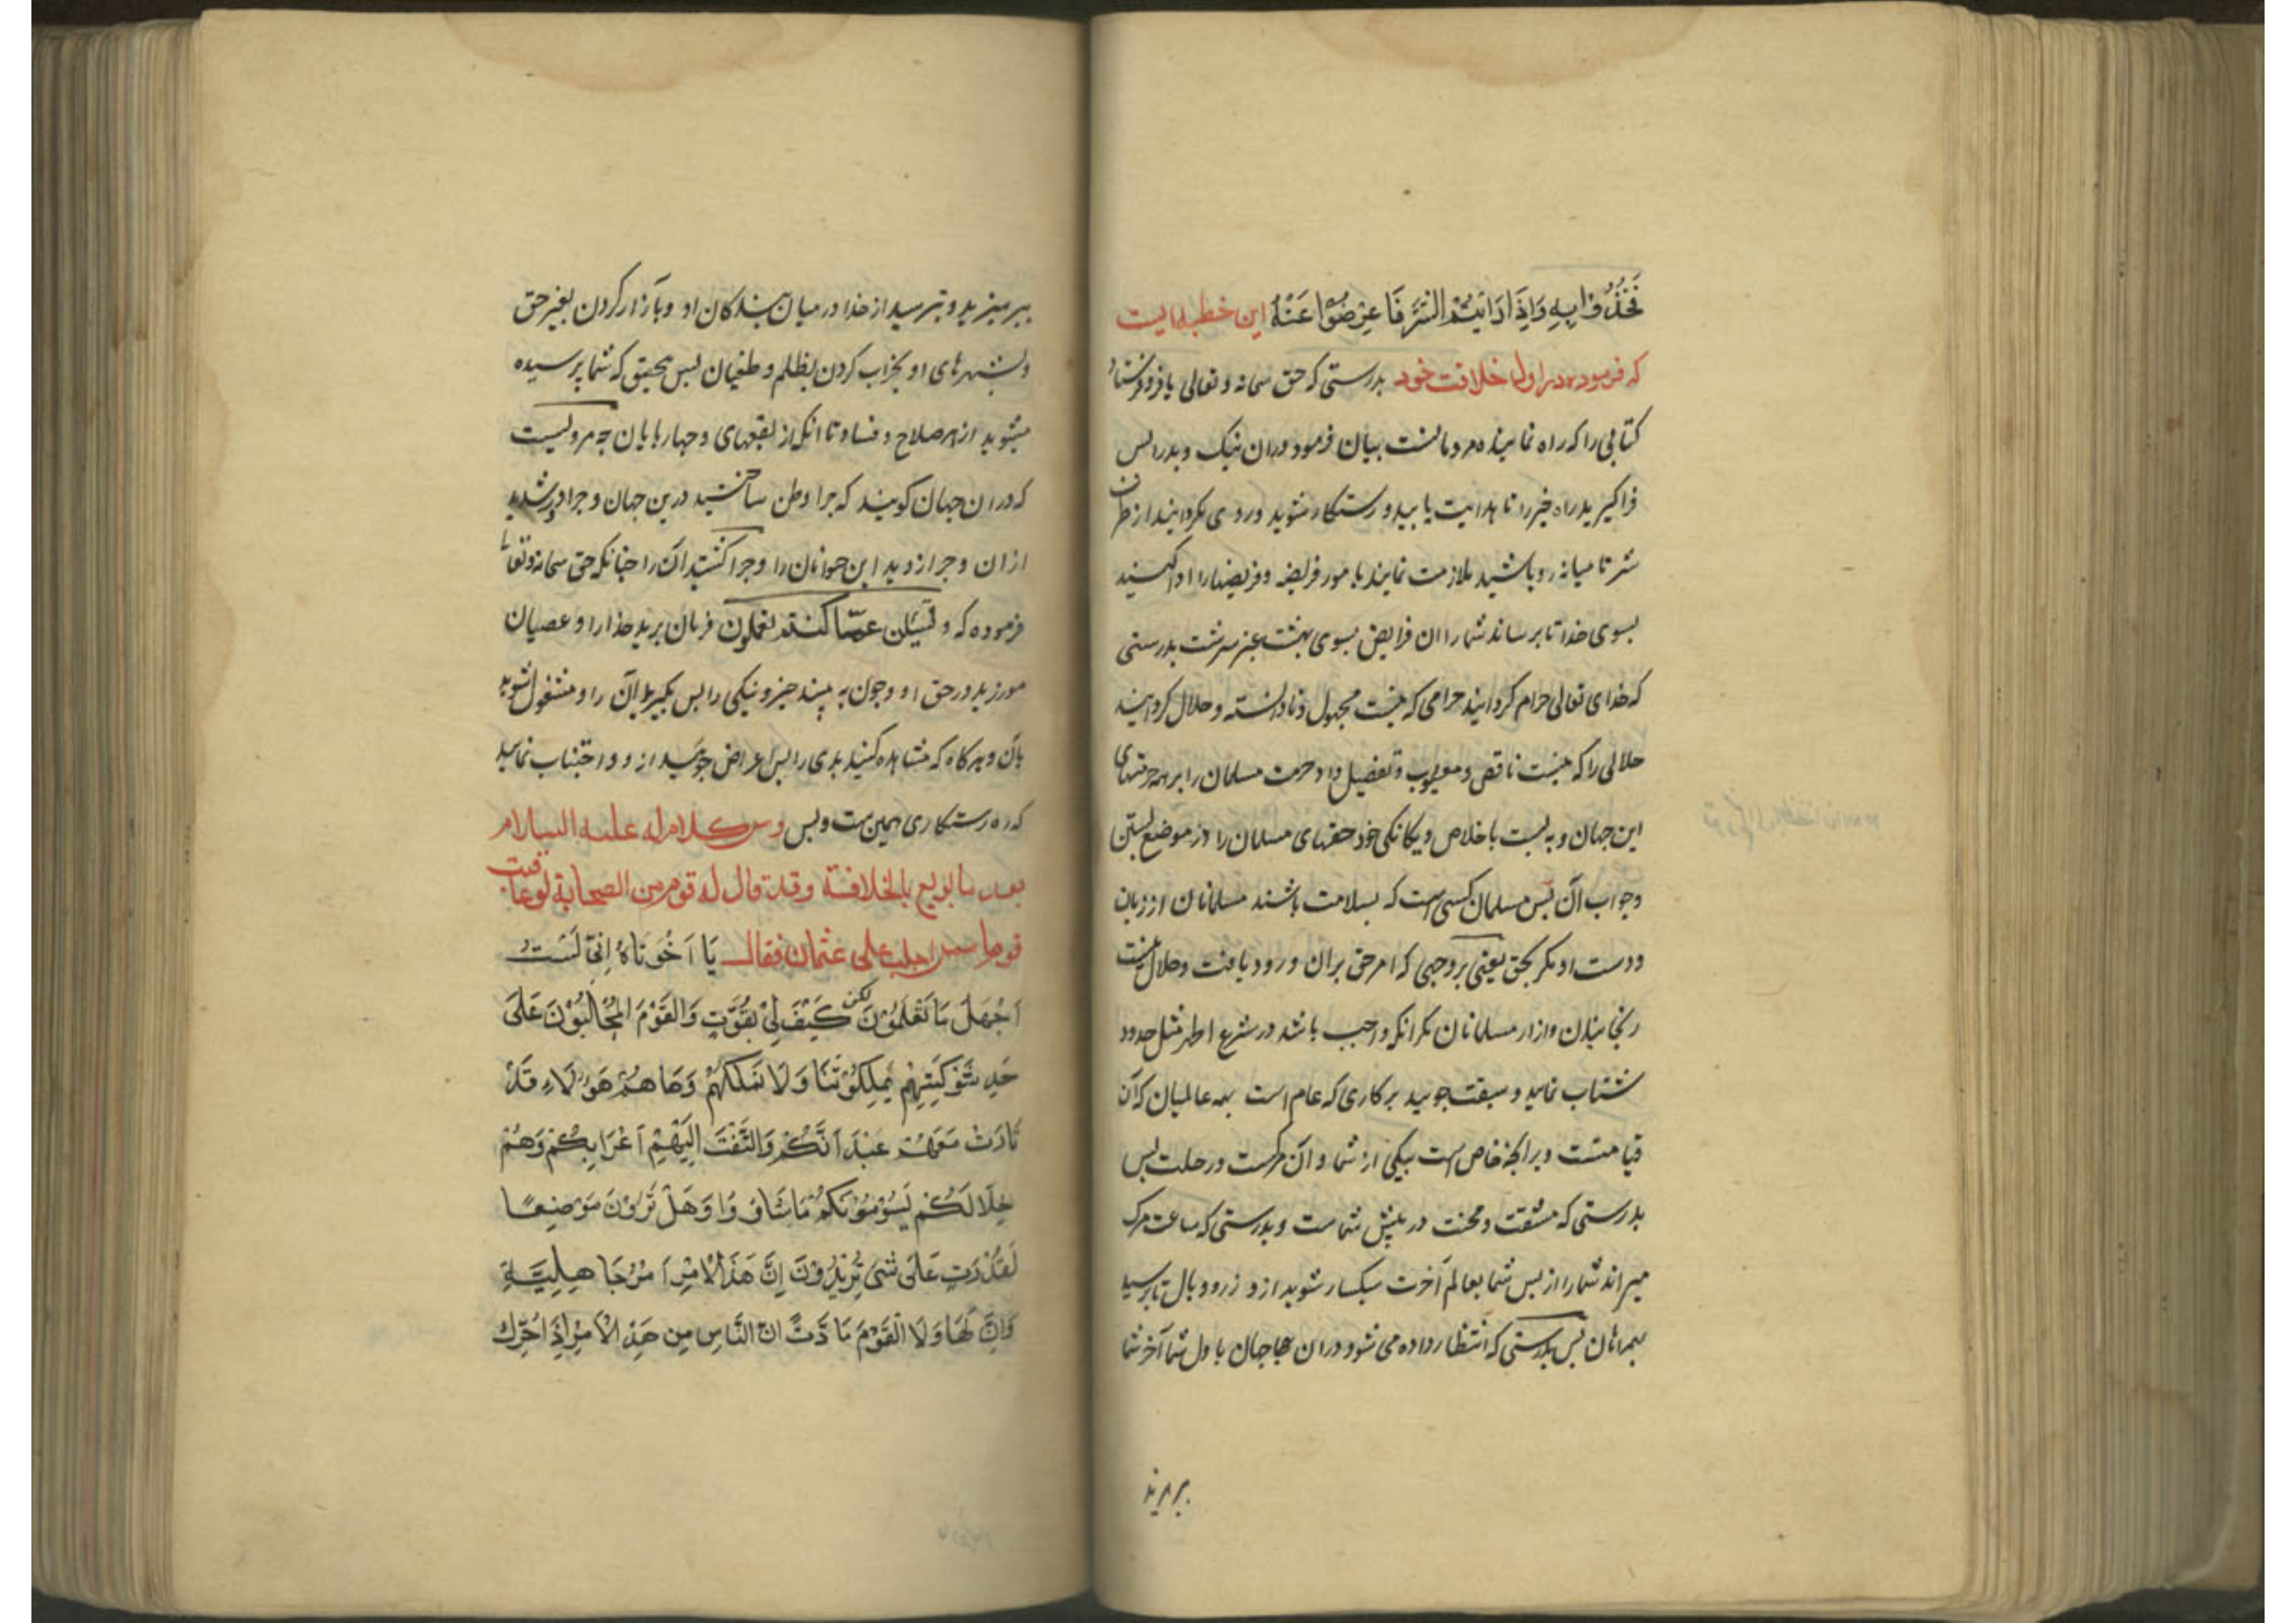 فَخُذُوْا بِهِ وَاِذَا رَاَیْتُمُ الشَّرَّ فَاَعْرِضُوْا عَنْهُ این خطبه ایست
که فرموده در اول خلافت خود بدرستی که حق سبحانه و تعالی یا فرو فرستاد
کتابی را که راه نماینده مردمانست بیان فرمود دران نیک و بد را پس
فراکیرید راه خیر را تا هدایت یابید و رستکار شوید و روی بگردانید از طرف
شر تا میانه رو باشید ملازمت نمایند بامور فریضه و فریضها را ادا کنید
بسوی خدا تا برساند شما را ان فرایض بسوی بهشت عنبر سرشت بدرستی
که خدای تعالی حرام کردانید حرامی که نیست مجهول و نادانسته و حلال کردانید
حلالی را که نیست ناقص و معیوب و تفضیل داد حرمت مسلمان را بر همه حرمتهای
این جهان و به بست باخلاص و یکانکی خود حقهای مسلمان را در موضع بستن
وجواب آن پس مسلمان کسی است که بسلامت باشند مسلمانان از زبان
ودست او مکر بحق یعنی بر وجهی که امر حق بران ورود یافت وحلال نیست
رنجانیدن وازار مسلمانان مکر انکه واجب باشد در شرع اطهر مثل حدود
شتاب نمایید و سبقت جویید بر کاری که عام است بهمه عالمیان که آن
قیامتست وبرانچه خاص است بیکی از شما و آن مرکست و رحلت پس
بدرستی که مشقت و محنت در پیش شماست و بدرستی که ساعت مرک
میراند شما را از پس شما بعالم آخرت سبکسار شوید از وزر و وبال تا برسید
بهمراهان پس بدرستی که انتظار داده می شود دران جهان باول شما آخر شما
بپرهیزید
بپرهیزید و بترسید از خدا در میان بندکان او و بآزار کردن بغیر حق
وبشهرهای او بخراب کردن بظلم و طغیان پس بتحقیق که شما پرسیده
میشوید از هر صلاح و فساد تا انکه از بقعهای و چهارپایان چه مرویست
که در ان جهان کویند که چرا وطن ساختید درین جهان و چرا دور شدید
ازان و چرا زدید این حیوانان را و چرا کشتید آن را چنانکه حق سبحانه و تعالی
فرموده که و لتسئلن عمّا کنتم تعملون فرمان برید خدا را و عصیان
مورزید در حق او و چون به بینید چیز و نیکی را پس بکیرید آن را و مشغول شوید
بآن و هرکاه که مشاهده کنید بدی را پس اعراض جویید ازو و اجتناب نمایید
که ره رستکاری همین ست وبس ومن کلام له علیه السلام
بعد ما بویع بالخلافة وقد قال له قوم من الصحابة لو عاقبت
قوما ممن اجلب علی عثمان فقال یَا اَخْوَتَاهُ اِنِّیْ لَسْتُ
اَجْهَلَ مَا تَعْلَمُوْنَ لکن کَیْفَ لِیْ بِقُوَّتٍ وَالْقَوْمُ الْمُجَالِبُوْنَ عَلَی
حَدِّ شَوْکَتِهِمْ یَمْلِکُوْنَنَا وَلَا نَمْلِکُهُمْ وَهَا هُمْ هَوُلَاءِ قَدْ
ثَارَتْ مَعَهُمْ عَبْدَانُکُمْ وَالْتَفَّتْ اِلَیْهِمْ اَعْرَابُکُمْ وَهُمْ
خِلَالَکُمْ یَسُوْمُوْنَکُمْ مَا شَاؤُوَا وَهَلْ تَرَوْنَ مَوْضِعًا
لِقُدْرَتٍ عَلَی شَیْءٍ تُرِیْدُوْنَ اِنَّ هَذَا الْاَمْرَ اَمْرُ جَاهِلِیَّةٍ
وَاِنَّ لَهَاوَلَا الْقَوْمِ مَادَّتً انّ النَّاسَ مِن هَذَ الْاَمْرِ اِذَا حُرِّكَ